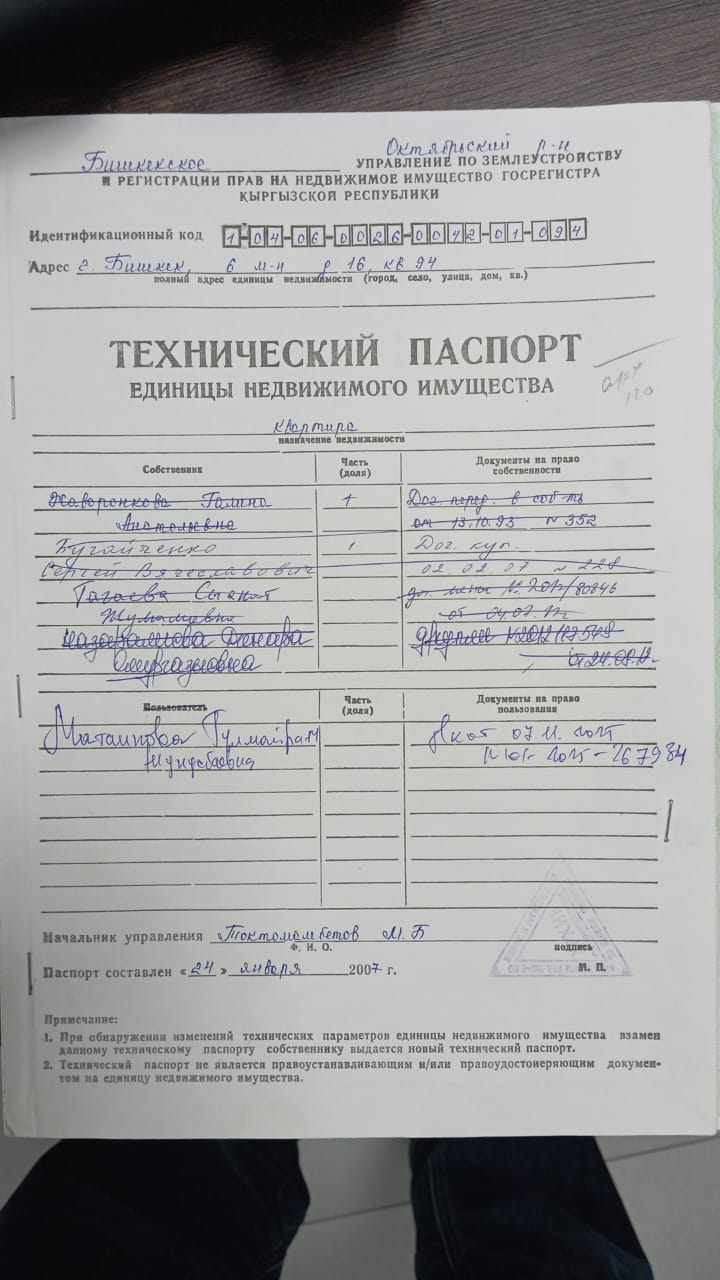 Бишкекское Октябрьский р-н
УПРАВЛЕНИЕ ПО ЗЕМЛЕУСТРОЙСТВУ
И РЕГИСТРАЦИИ ПРАВ НА НЕДВИЖИМОЕ ИМУЩЕСТВО ГОСРЕГИСТРА
КЫРГЫЗСКОЙ РЕСПУБЛИКИ
Идентификационный код 1-04-06-0026-0042-01-094
Адрес г. Бишкек, 6 м-н д 16, кв 94
полный адрес единицы недвижимости (город, село, улица, дом, кв.)
ТЕХНИЧЕСКИЙ ПАСПОРТ
ЕДИНИЦЫ НЕДВИЖИМОГО ИМУЩЕСТВА
квартира
назначение недвижимости
Собственник Часть (доля) Документы на право собственности
Жаворонкова Галина 1 Дог. перед. в соб-ть
Анатольевна от 13.10.93 N 352
Бугайченко 1 Дог. куп.
Сергей Вячеславович 02.02.07 N 228
Тагаева Сыякот
от 04.07.12г
Назаралиева Динара
Омургазыевна от 24.09.12.
Пользователь Часть (доля) Документы на право пользования
Матаипова Гулмайрам 07.11.2025
N 101-2025-267984
Начальник управления Токтомамбетов М.Б
Ф. И. О. подпись
Паспорт составлен «24» января 2007 г. М. П.
Примечание:
1. При обнаружении изменений технических параметров единицы недвижимого имущества взамен
данному техническому паспорту собственнику выдается новый технический паспорт.
2. Технический паспорт не является правоустанавливающим и/или правоудостоверяющим докумен-
том на единицу недвижимого имущества.